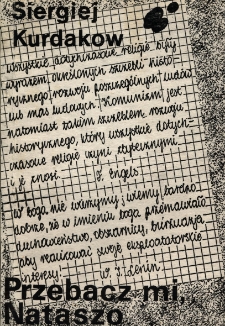 Siergiej
Kurdakow
wszystkie dotychczasowe religie były
wyrazem określonych szczebli histo-
rycznego rozwoju poszczególnych ludów
lub mas ludowych. Komunizm jest
natomiast takim szczeblem rozwoju
historycznego, który wszystkie dotych-
czasowe religie czyni zbytecznymi
i je znosi.
F. Engels
W boga nie wierzymy, wiemy bardzo
dobrze, że w imieniu boga przemawiało
duchowieństwo, obszarnicy, burżuazja,
aby realizować swoje eksploatatorskie
interesy!
W. I. Lenin.
Przebacz mi,
Nataszo